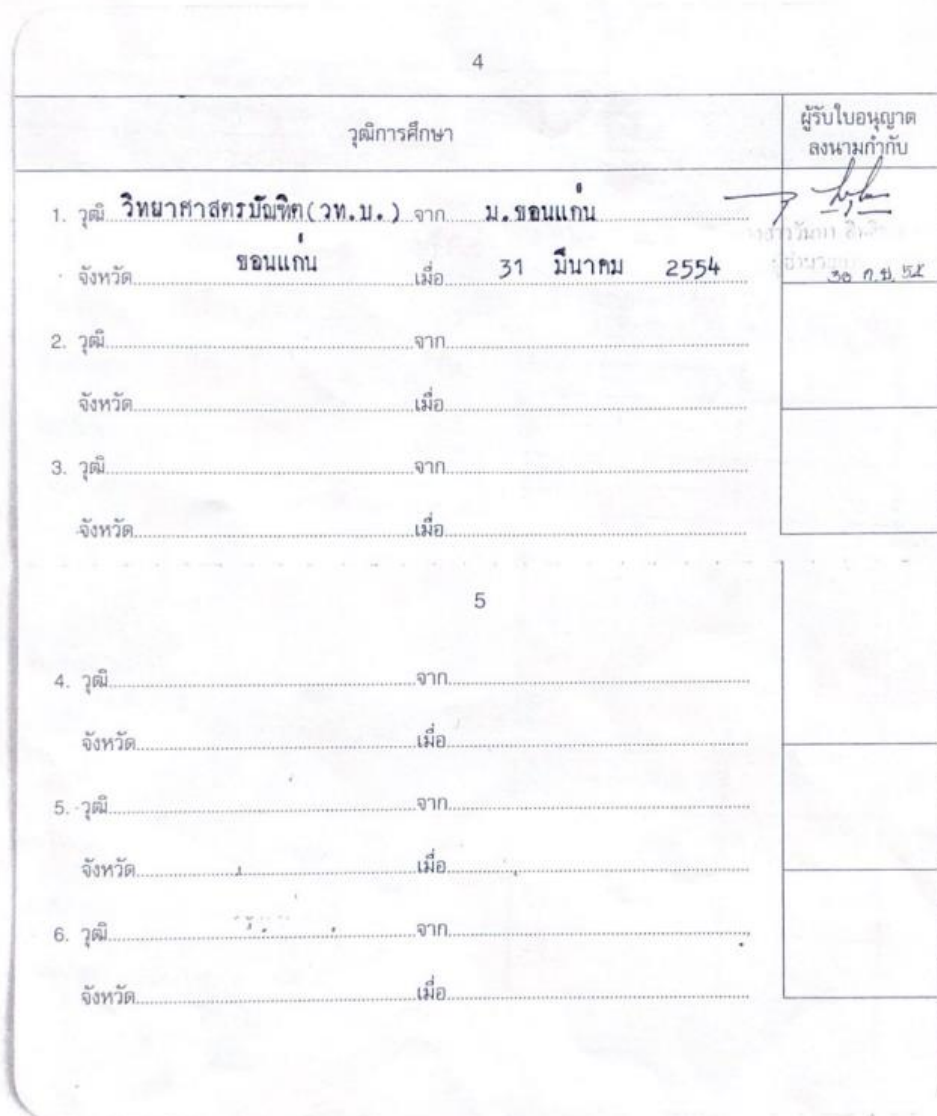 4
วุฒิการศึกษา
ผู้รับใบอนุญาต
ลงนามกำกับ
1. วุฒิ วิทยาศาสตรบัณฑิต(วท.บ.) จาก ม.ขอนแก่น
จังหวัด ขอนแก่น เมื่อ 31 มีนาคม 2554
30 ก.ย.
2. วุฒิ จาก
จังหวัด เมื่อ
3. วุฒิ จาก
จังหวัด เมื่อ
5
4. วุฒิ จาก
จังหวัด เมื่อ
5. วุฒิ จาก
จังหวัด เมื่อ
6. วุฒิ จาก
จังหวัด เมื่อ